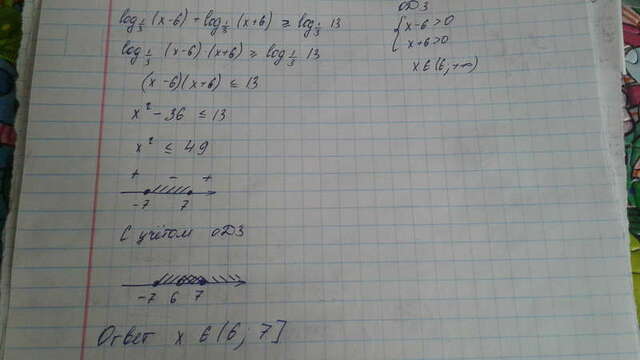 log₁/₃ (x-6) + log₁/₃ (x+6) ≥ log₁/₃ 13
log₁/₃ (x-6)(x+6) ≥ log₁/₃ 13
(x-6)(x+6) ≤ 13
x² - 36 ≤ 13
x² ≤ 49
+ - +
-7 7
С учётом ОДЗ
-7 6 7
Ответ x ∈ (6; 7]
ОДЗ
{ x-6>0
x+6>0
x ∈ (6; +∞)